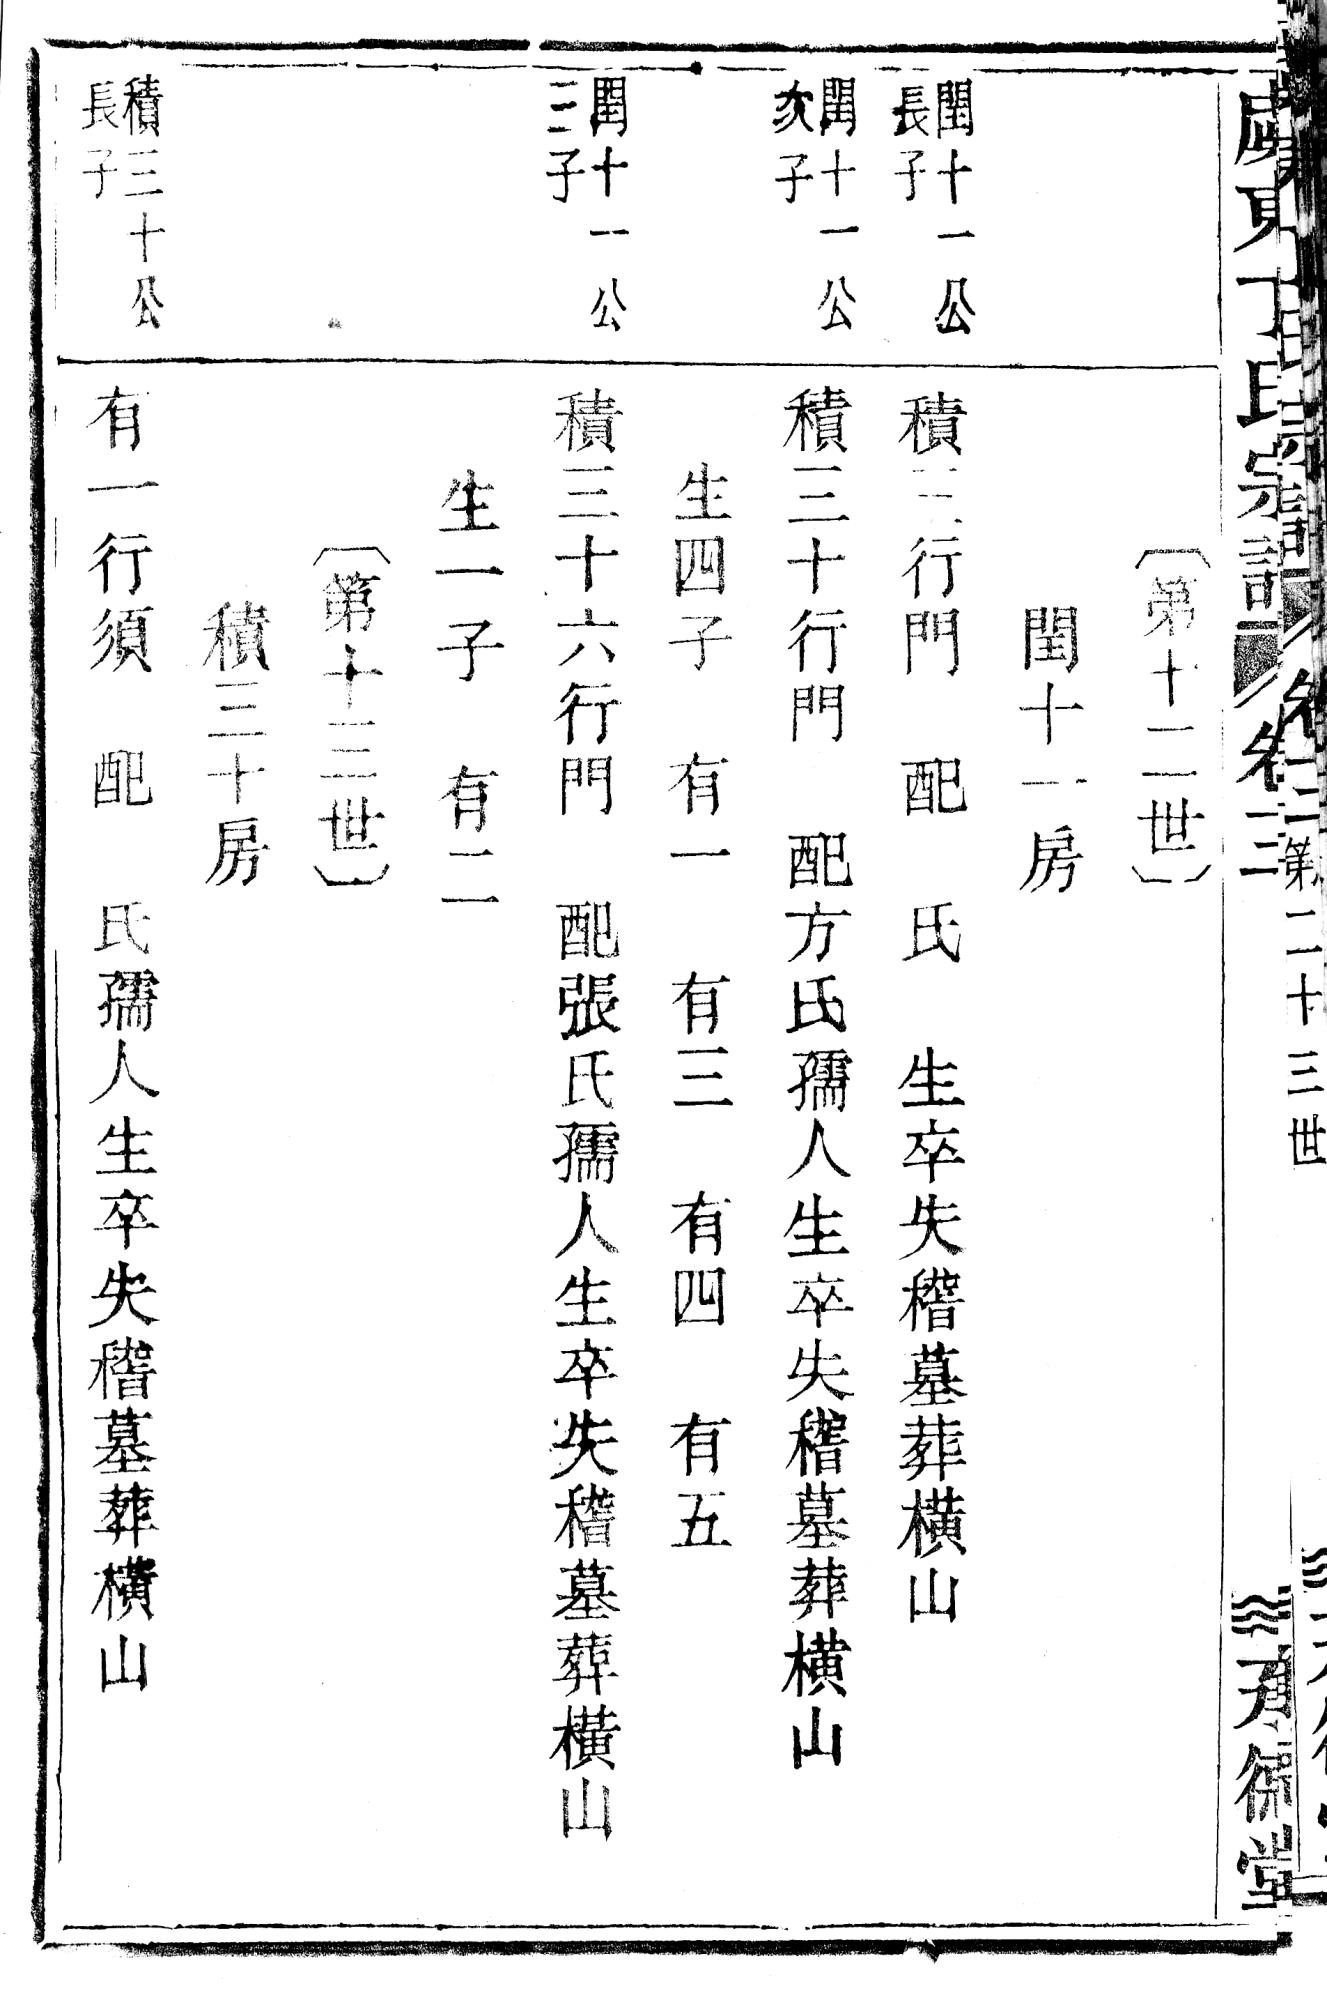 丁氏宗譜 卷二
第二十三世
〔第十二世〕
閏十一房
閏十一公
長子
積 行門 配 氏 生卒失稽墓葬橫山
閏十一公
次子
積三十行門 配方氏孺人生卒失稽墓葬橫山
生四子 有一 有三 有四 有五
閏十一公
三子
積三十六行門 配張氏孺人生卒失稽墓葬橫山
生一子 有二
〔第十三世〕
積三十房
積三十公
長子
有一行須 配 氏孺人生卒失稽墓葬橫山
堂